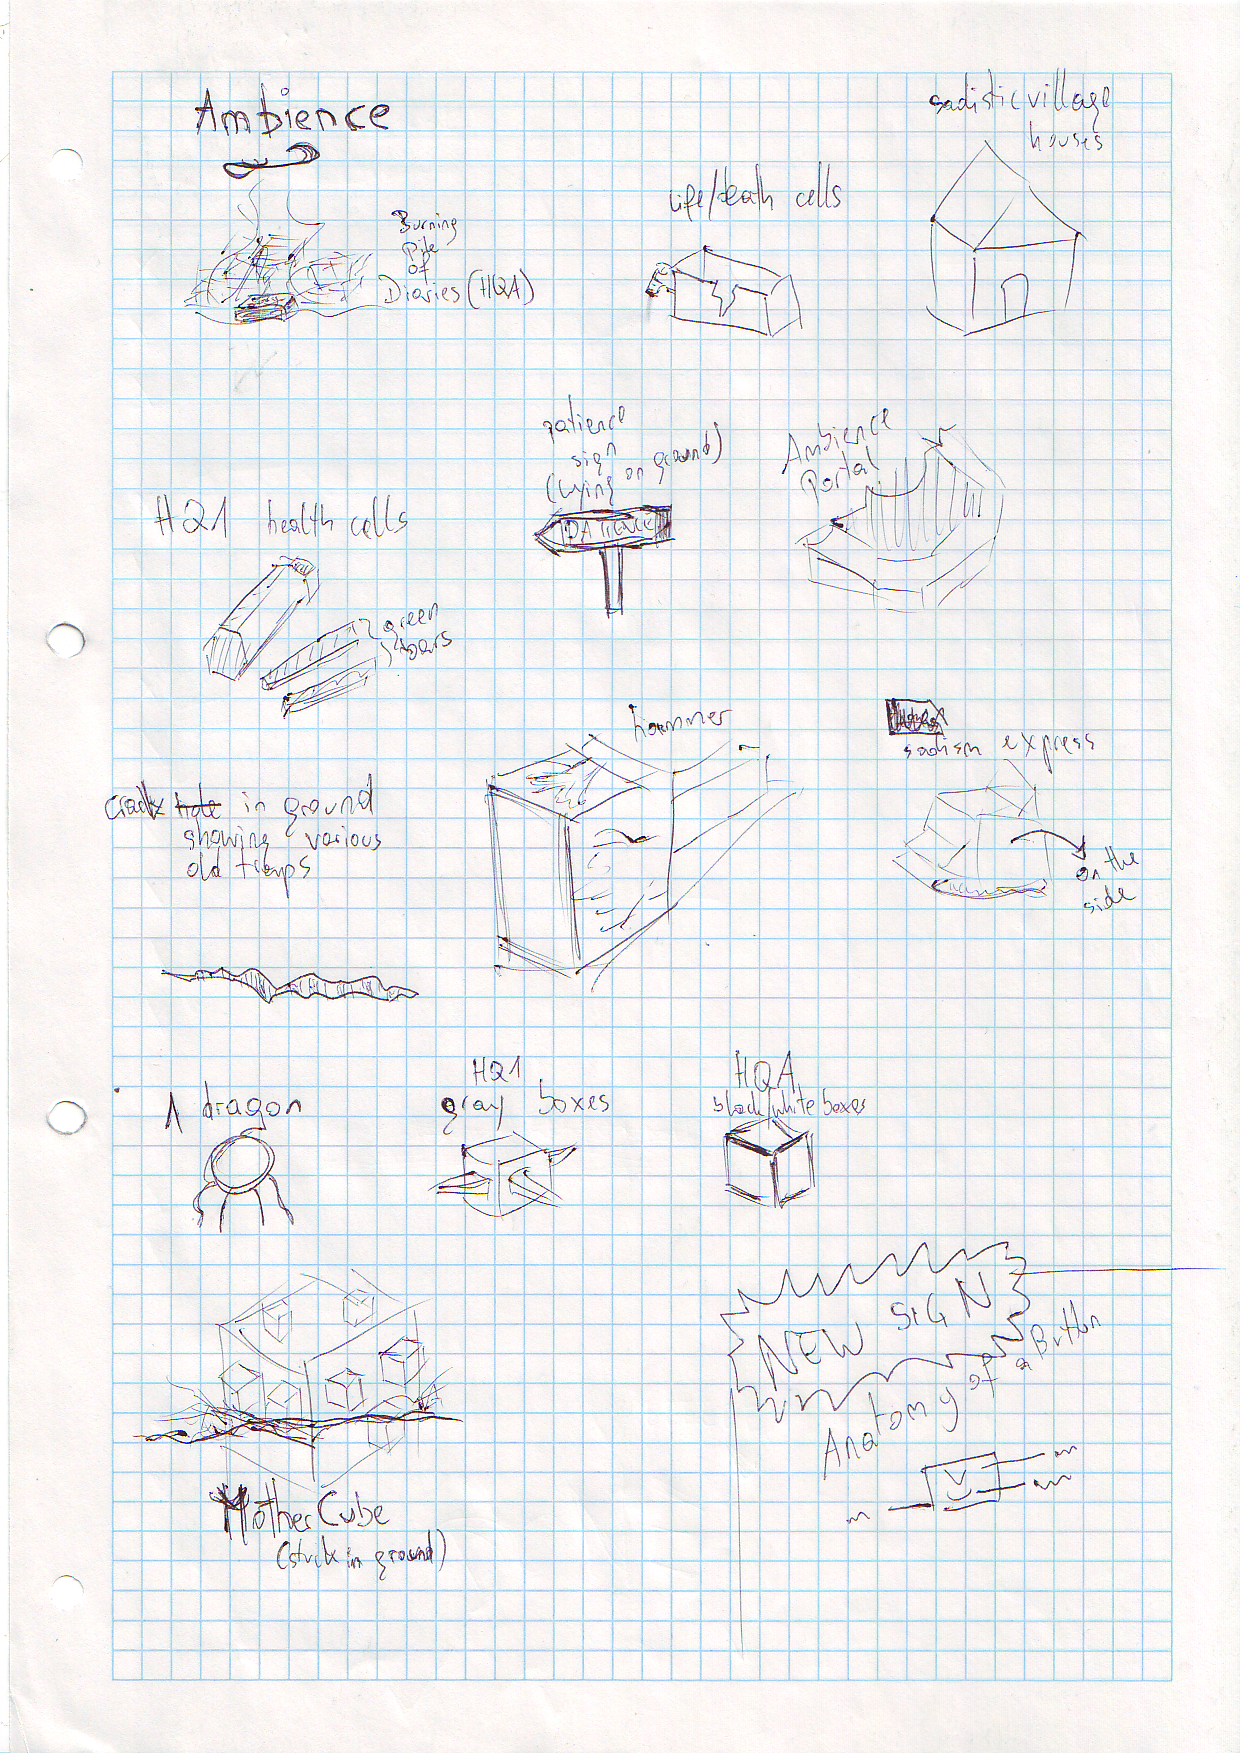 Ambience
sadistic village
houses
Life/death cells
Burning
Pile
of
Diaries (HQA)
patience
sign
(lying on ground)
PATIENCE
Ambience
Portal
HQ1 health cells
green
bars
hammer
sadism express
on the
side
crack hole in ground
showing various
old traps
1 dragon
HQ1
gray boxes
HQA
black/white boxes
NEW SIGN
Anatomy of a Button
MotherCube
(stuck in ground)